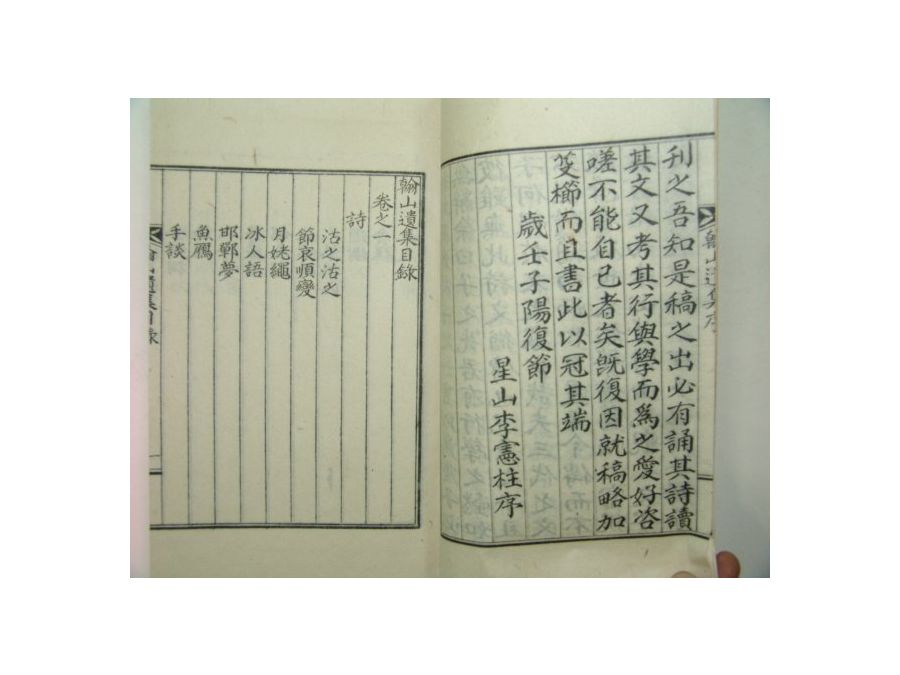 刊之吾知是稿之出必有誦其詩讀
其文又考其行與學而爲之愛好咨
嗟不能自已者矣旣復因就稿略加
筊櫛而且書此以冠其端
歲壬子陽復節
星山李憲柱序
翰山遺集序
翰山遺集目錄
卷之一
詩
沽之沽之
節哀順變
月姥繩
冰人語
邯鄲夢
魚鴈
手談
翰山遺集目錄